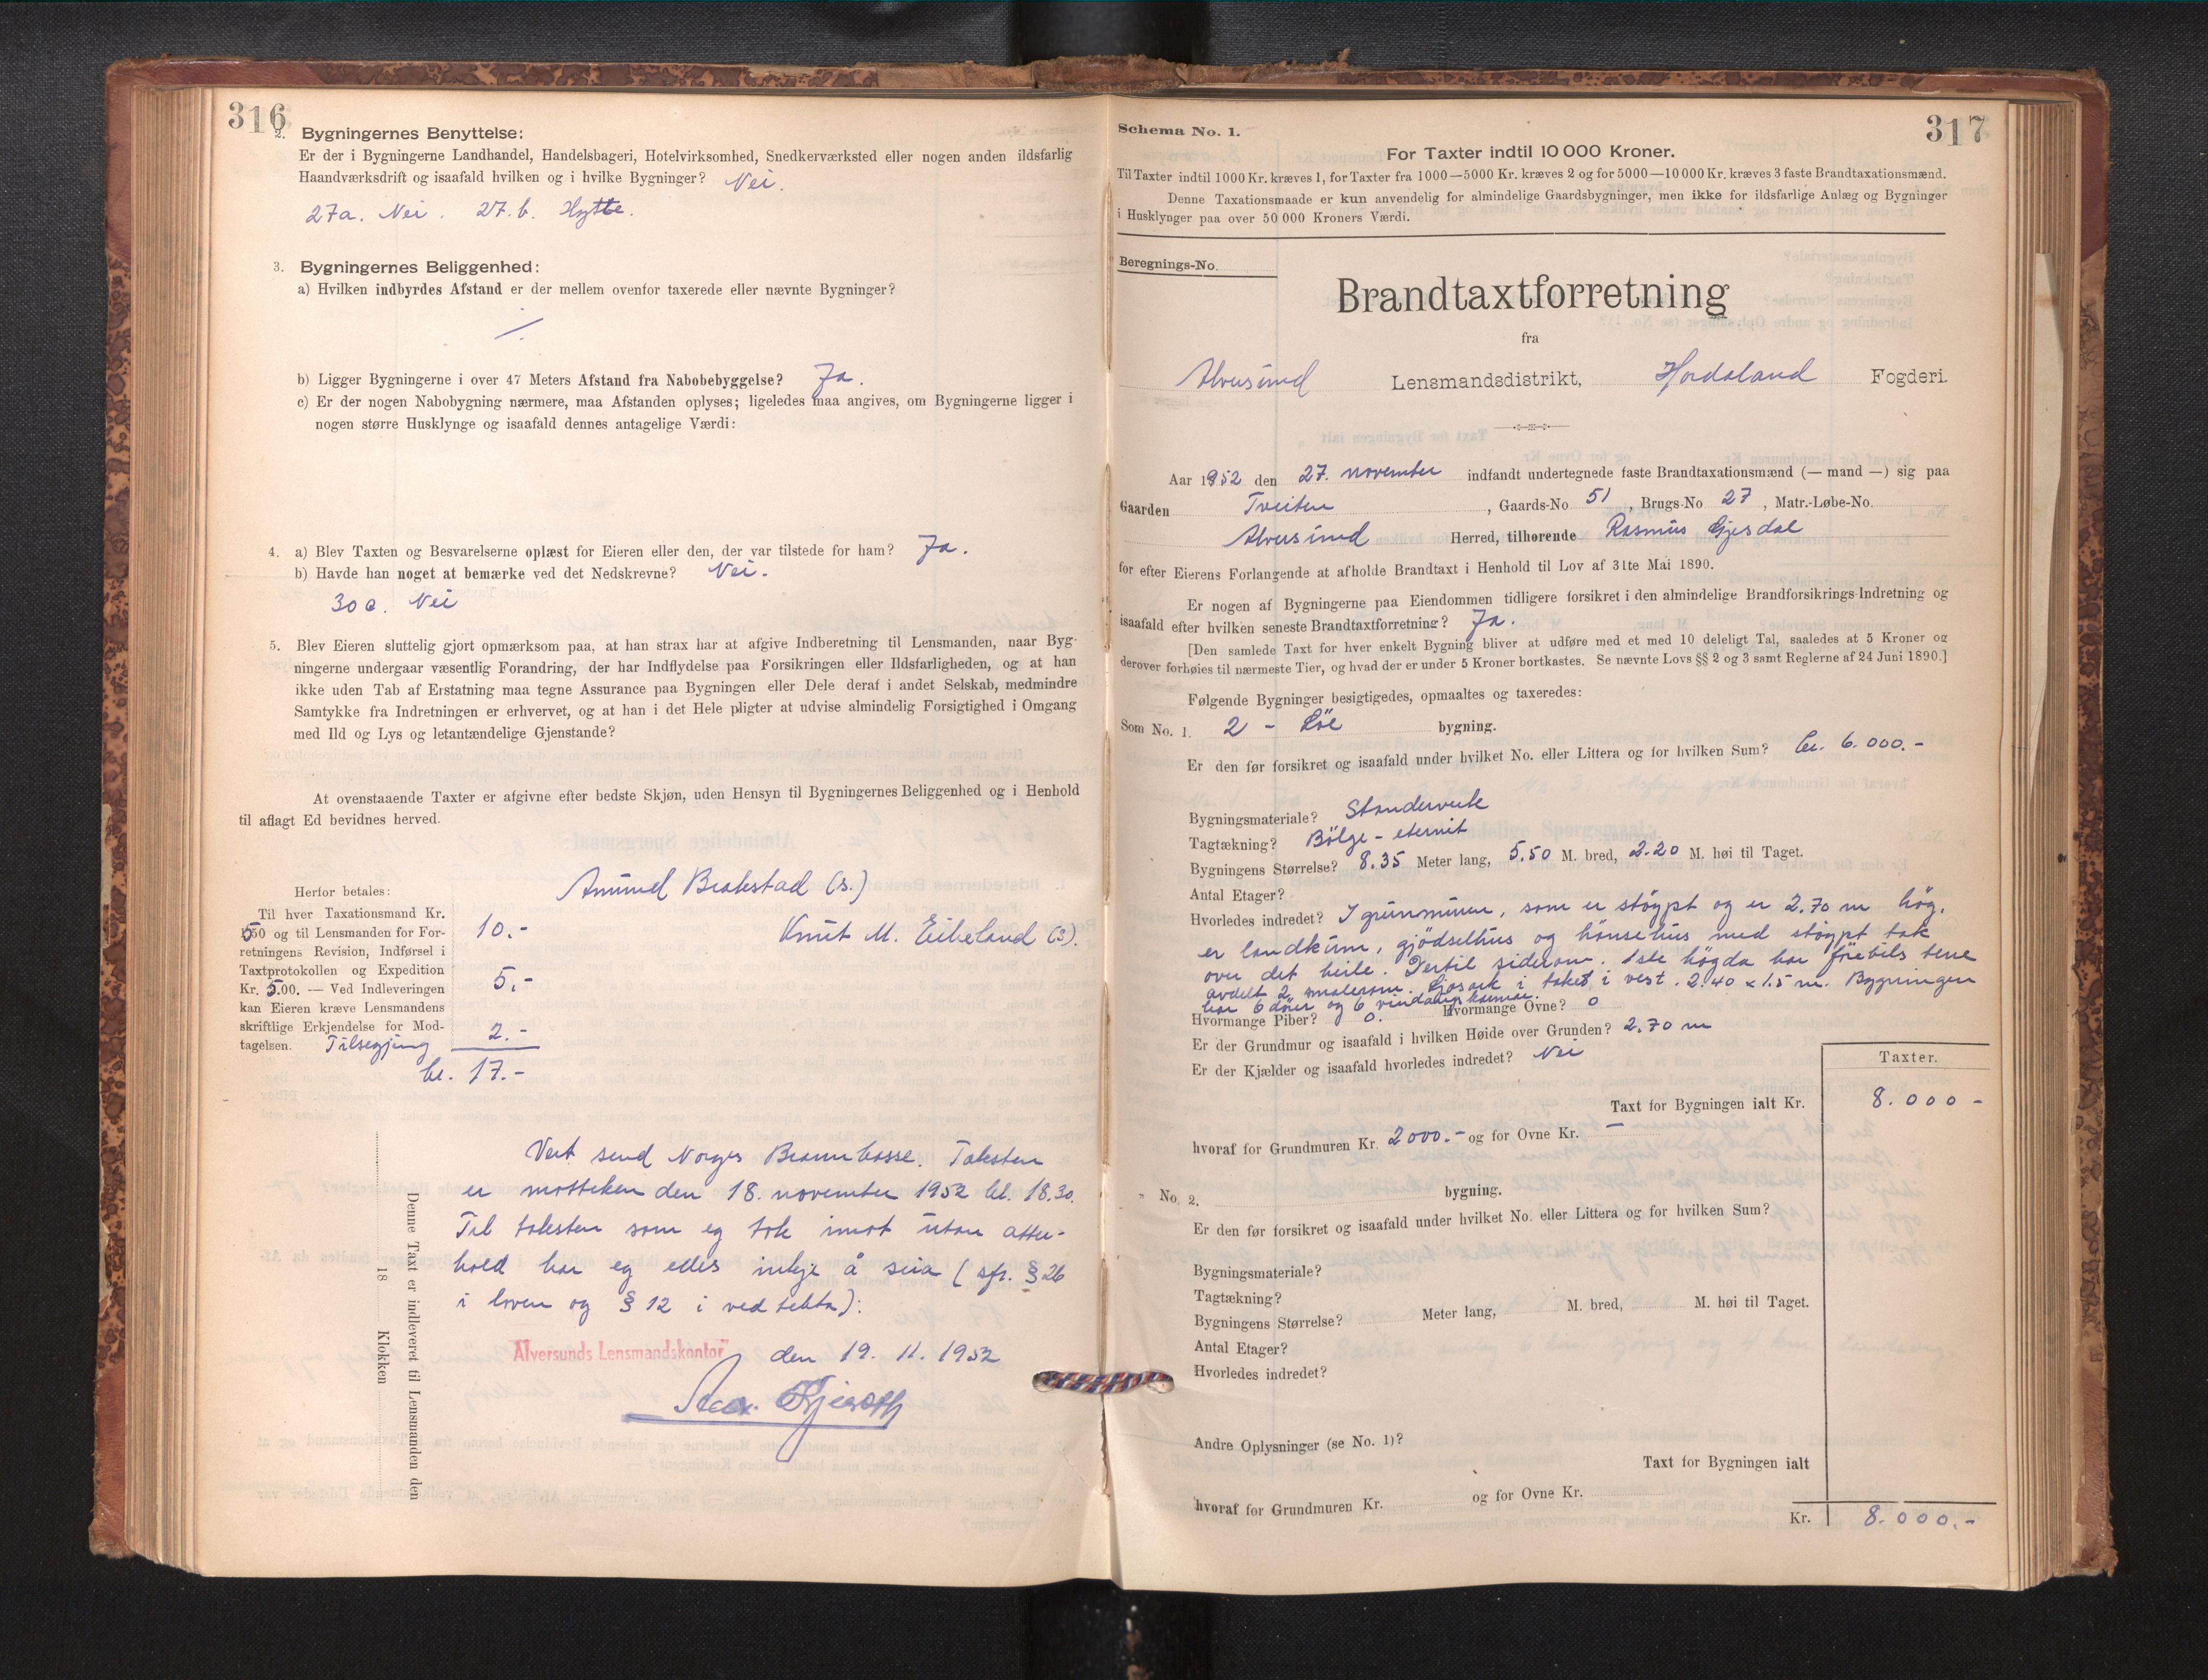 316
2. Bygningernes Benyttelse:
Er der i Bygningerne Landhandel, Handelsbageri, Hotelvirksomhed, Snedkerværksted eller nogen anden ildsfarlig
Haandværksdrift og isaafald hvilken og i hvilke Bygninger? Nei.
27a. Nei. 27.b. Hytte.
3. Bygningernes Beliggenhed:
a) Hvilken indbyrdes Afstand er der mellem ovenfor taxerede eller nævnte Bygninger?
b) Ligger Bygningerne i over 47 Meters Afstand fra Nabobebyggelse? Ja.
c) Er der nogen Nabobygning nærmere, maa Afstanden oplyses; ligeledes maa angives, om Bygningerne ligger i
nogen større Husklynge og isaafald dennes antagelige Værdi:
4. a) Blev Taxten og Besvarelserne oplæst for Eieren eller den, der var tilstede for ham? Ja.
b) Havde han noget at bemærke ved det Nedskrevne? Nei.
30 c. Nei
5. Blev Eieren sluttelig gjort opmærksom paa, at han strax har at afgive Indberetning til Lensmanden, naar Byg-
ningerne undergaar væsentlig Forandring, der har Indflydelse paa Forsikringen eller Ildsfarligheden, og at han
ikke uden Tab af Erstatning maa tegne Assurance paa Bygningen eller Dele deraf i andet Selskab, medmindre
Samtykke fra Indretningen er erhvervet, og at han i det Hele pligter at udvise almindelig Forsigtighed i Omgang
med Ild og Lys og letantændelige Gjenstande?
At ovenstaaende Taxter er afgivne efter bedste Skjøn, uden Hensyn til Bygningernes Beliggenhed og i Henhold
til aflagt Ed bevidnes herved.
Amund Brakstad (s.)
Knut M. Eikeland (s).
Herfor betales:
Til hver Taxationsmand Kr.
5.50 og til Lensmanden for For- 10.-
retningens Revision, Indførsel i
Taxtprotokollen og Expedition
Kr. 5.00. — Ved Indleveringen 5.-
kan Eieren kræve Lensmandens
skriftlige Erkjendelse for Mod- 2.-
tagelsen. Tilsegjing
kr. 17.-
Vert send Norges Brannkasse. Taksten
er motteken den 18. november 1952 kl. 18.30.
Til taksten som eg tok imot utan atter-
hold har eg elles inkje å seia (sfr. § 26
i loven og § 12 i vedtekta):
Alversunds Lensmandskontor den 19. 11. 1952
Denne Taxt er indleveret til Lensmanden den
18 Klokken
317
Schema No. 1.
For Taxter indtil 10 000 Kroner.
Til Taxter indtil 1000 Kr. kræves 1, for Taxter fra 1000—5000 Kr. kræves 2 og for 5000—10 000 Kr. kræves 3 faste Brandtaxationsmænd.
Denne Taxationsmaade er kun anvendelig for almindelige Gaardsbygninger, men ikke for ildsfarlige Anlæg og Bygninger
i Husklynger paa over 50 000 Kroners Værdi.
Beregnings-No.
Brandtaxtforretning
fra
Alversund Lensmandsdistrikt, Hordaland Fogderi.
Aar 1952 den 27. november indfandt undertegnede faste Brandtaxationsmænd (— mand —) sig paa
Gaarden Tveiten, Gaards-No 51, Brugs-No 27, Matr.-Løbe-No.
Alversund Herred, tilhørende Rasmus Gjesdal
for efter Eierens Forlangende at afholde Brandtaxt i Henhold til Lov af 31te Mai 1890.
Er nogen af Bygningerne paa Eiendommen tidligere forsikret i den almindelige Brandforsikrings-Indretning og
isaafald efter hvilken seneste Brandtaxtforretning? Ja.
[Den samlede Taxt for hver enkelt Bygning bliver at udføre med et med 10 deleligt Tal, saaledes at 5 Kroner og
derover forhøies til nærmeste Tier, og hvad der er under 5 Kroner bortkastes. Se nævnte Lovs §§ 2 og 3 samt Reglerne af 24 Juni 1890.]
Følgende Bygninger besigtigedes, opmaaltes og taxeredes:
Som No. 1. 2 - Löe bygning.
Er den før forsikret og isaafald under hvilket No. eller Littera og for hvilken Sum? kr. 6.000.-
Bygningsmateriale? Standerverk
Tagtækning? Bölge-eternit
Bygningens Størrelse? 8.35 Meter lang, 5.50 M. bred, 2.20 M. høi til Taget.
Antal Etager?
Hvorledes indredet? I grunnmuren, som er stöypt og er 2.70 m hög,
er landkum, gjödselhus og hönsehus med stöypt tak
over det heile. Dertil siderom. 1ste högda har förebils tene
avdelt 2 smalerom. Ljosark i taket i vest. 2.40 x 1.5 m. Bygningen
har 6 dörer og 6 vindaugskarmar.
Hvormange Piber? 0. Hvormange Ovne? 0
Er der Grundmur og isaafald i hvilken Høide over Grunden? 2.70 m
Er der Kjælder og isaafald hvorledes indredet? Nei
Taxter.
Taxt for Bygningen ialt Kr. 8.000-
hvoraf for Grundmuren Kr. 2000.- og for Ovne Kr. —
" No. 2. bygning.
Er den før forsikret og isaafald under hvilket No. eller Littera og for hvilken Sum?
Bygningsmateriale?
Tagtækning?
Bygningens Størrelse? Meter lang, M. bred, M. høi til Taget.
Antal Etager?
Hvorledes indredet?
Andre Oplysninger (se No. 1)?
Taxt for Bygningen ialt
hvoraf for Grundmuren Kr. og for Ovne Kr.
Kr. 8.000.-